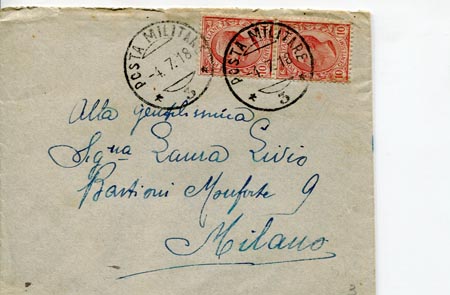 POSTA MILITARE
-4.7.18
* 3 *
POSTA MILITARE
4.7.18
* 3 *
10
10
Alla gentilissima
Sig.na Laura Livio
Bastioni Monforte 9
Milano